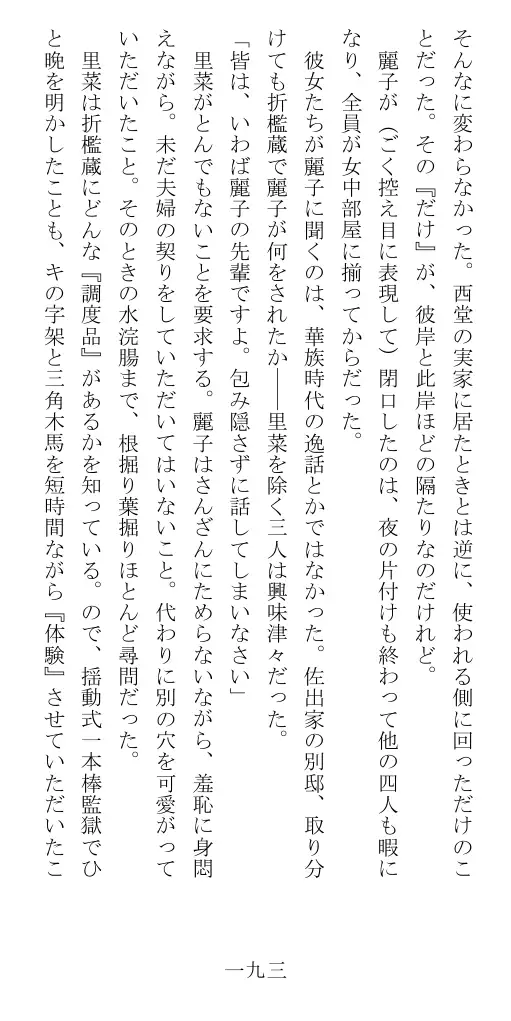 そんなに変わらなかった。西堂の実家に居たときとは逆に、使われる側に回っただけのこ
とだった。その『だけ』が、彼岸と此岸ほどの隔たりなのだけれど。
　麗子が（ごく控え目に表現して）閉口したのは、夜の片付けも終わって他の四人も暇に
なり、全員が女中部屋に揃ってからだった。
　彼女たちが麗子に聞くのは、華族時代の逸話とかではなかった。佐出家の別邸、取り分
けても折檻蔵で麗子が何をされたか――里菜を除く三人は興味津々だった。
「皆は、いわば麗子の先輩ですよ。包み隠さずに話してしまいなさい」
　里菜がとんでもないことを要求する。麗子はさんざんにためらないながら、羞恥に身悶
えながら。未だ夫婦の契りをしていただいてはいないこと。代わりに別の穴を可愛がって
いただいたこと。そのときの水浣腸まで、根掘り葉掘りほとんど尋問だった。
　里菜は折檻蔵にどんな『調度品』があるかを知っている。ので、揺動式一本棒監獄でひ
と晩を明かしたことも、キの字架と三角木馬を短時間ながら『体験』させていただいたこ
一九三